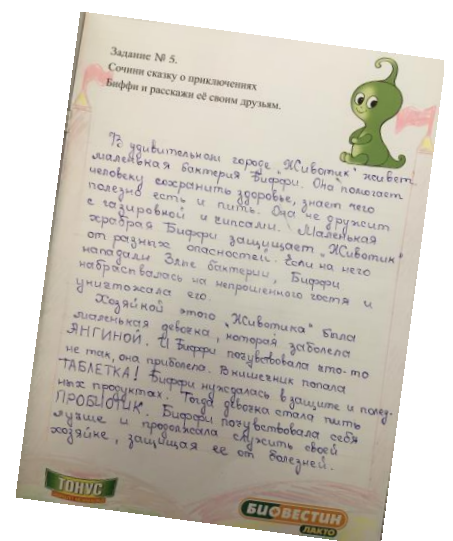 Задание № 5.
Сочини сказку о приключениях
Биффи и расскажи её своим друзьям.
В удивительном городе „Животик" живет
маленькая бактерия Биффи. Она помогает
человеку сохранить здоровье, знает чего
полезно есть и пить. Она не дружит
с газировкой и чипсами. Маленькая
храбрая Биффи защищает „Животик"
от разных опасностей. Если на него
нападали Злые бактерии, Биффи
набрасывалась на непрошенного гостя и
уничтожала его.
Хозяйкой этого „Животика" была
маленькая девочка, которая заболела
АНГИНОЙ. И Биффи почувствовала что-то
не так, она приболела. В кишечник попала
ТАБЛЕТКА! Биффи нуждалась в защите и полез-
ных продуктах. Тогда девочка стала пить
ПРОБИОТИК. Биффи почувствовала себя
лучше и продолжала служить своей
хозяйке, защищая ее от болезней.
ТОНУС
БИОВЕСТИН
ЛАКТО